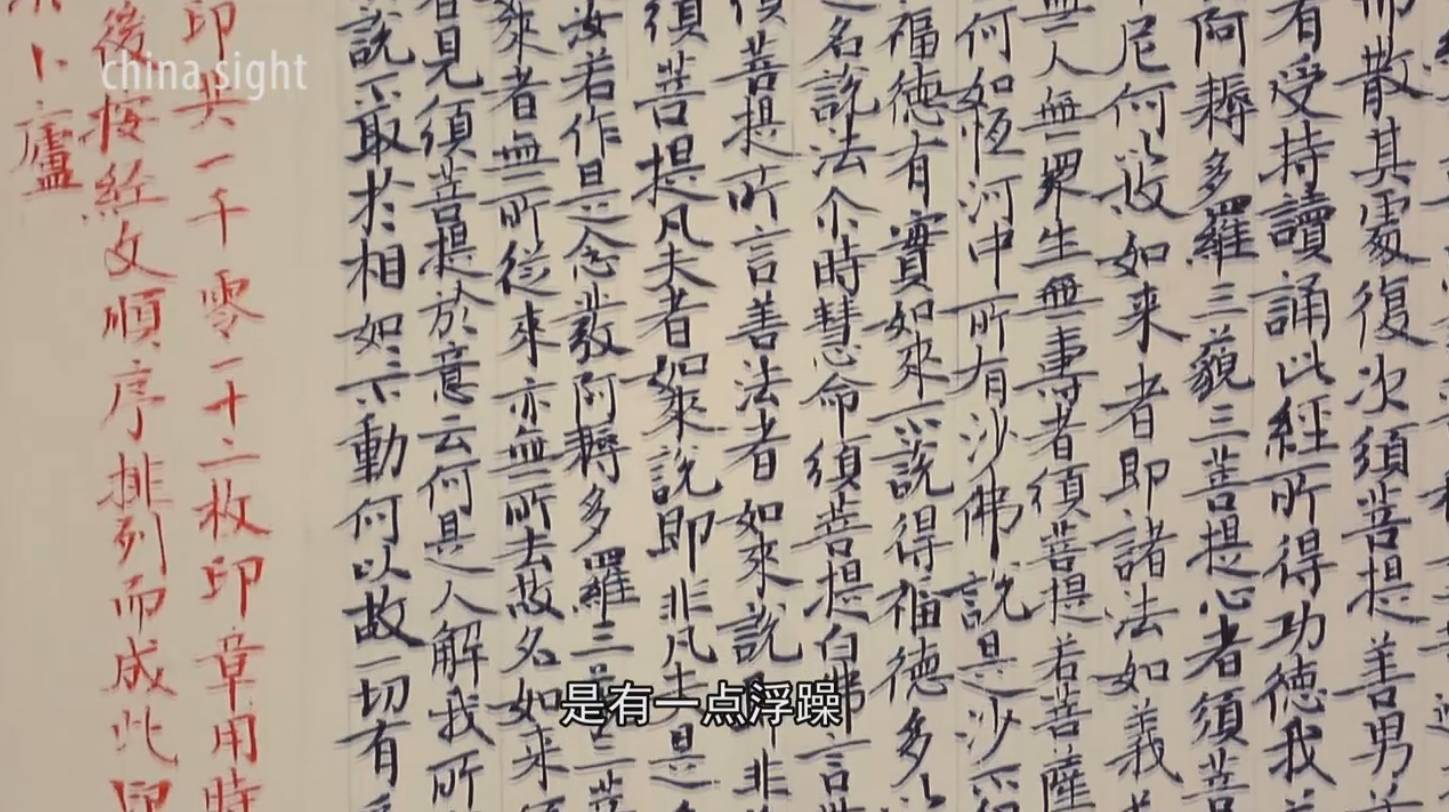 china sight
而散其處復次須菩提善男
有受持讀誦此經所得功德我
阿耨多羅三藐三菩提心者須菩
尼何以故如来者即諸法如義
無人無眾生無壽者須菩提若菩薩
何如恆河中所有沙佛說是沙不
福德有實如來不說得福德多以
之名說法尒時慧命須菩提白佛言世
須菩提所言善法者如來說即非
須菩提凡夫者如來說即非凡夫是
汝若作是念發阿耨多羅三藐三菩
來者無所從來亦無所去故名如來
者見須菩提於意云何是人解我所
說不取於相如如不動何以故一切有
印共一千零一十二枚印章用時
後按經文順序排列而成此印
卜廬
是有一点浮躁